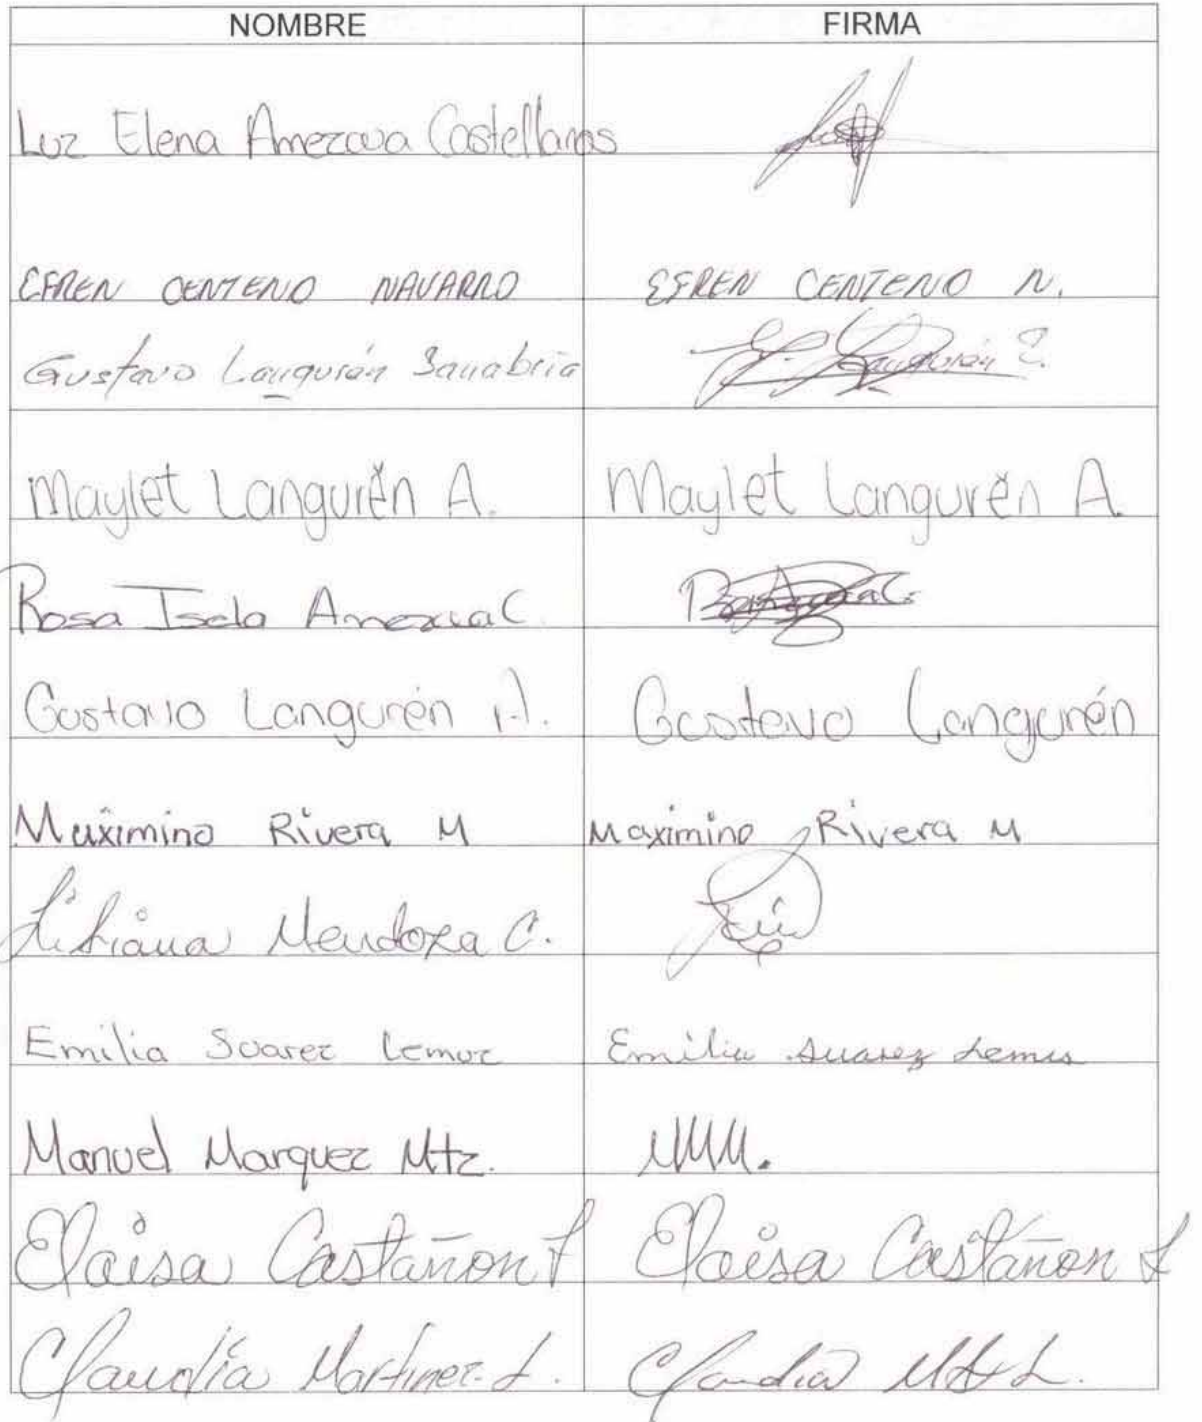 NOMBRE FIRMA
Luz Elena Amezcua Castellanos
EFREN CENTENO NAVARRO EFREN CENTENO N.
Gustavo Langurén Sanabria
Maylet Langurén A. Maylet Langurén A.
Rosa Isela Amezcua C.
Gustavo Langurén A. Gustavo Langurén
Maximino Rivera M Maximino Rivera M
Liliana Mendoza C.
Emilia Suarez Lemuz Emilia Suarez Lemus
Manuel Marquez Mtz. MMM.
Eloisa Castañon L Eloisa Castañon L
Claudia Martinez L. Claudia Mtz L.